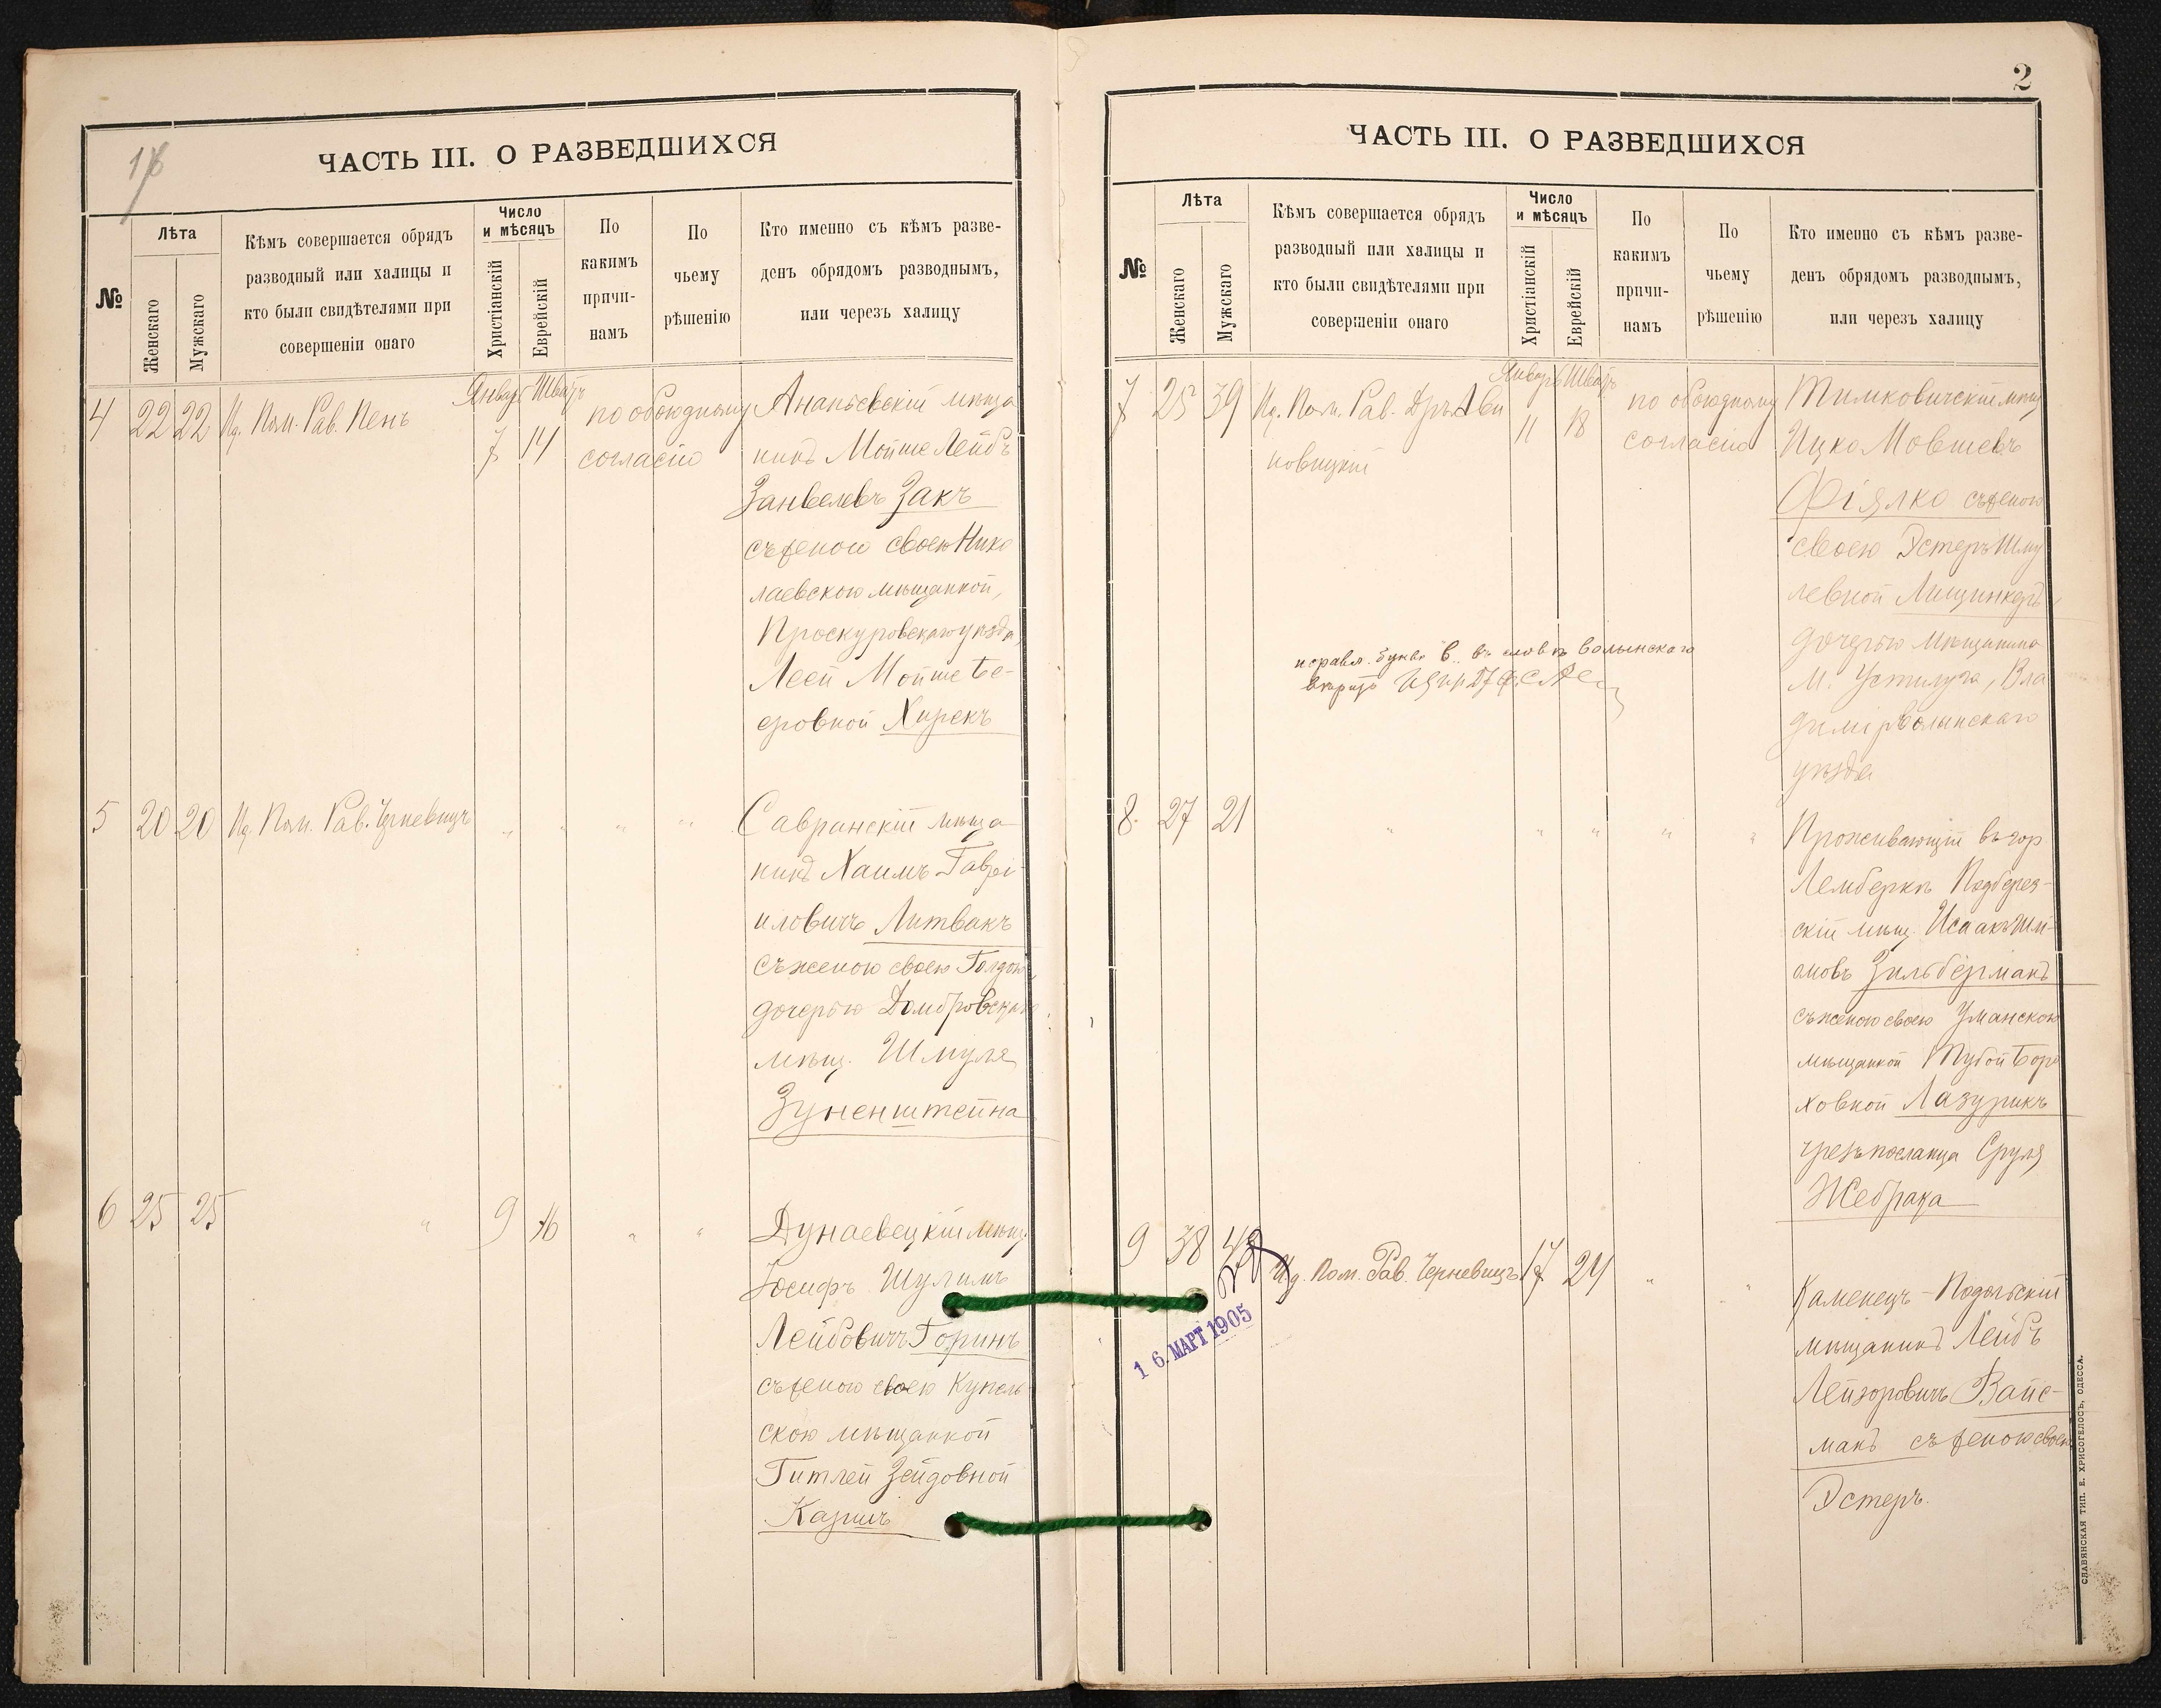 ЧАСТЬ III. О РАЗВЕДШИХСЯ
№
Лѣта
Женскаго
Мужскаго
Кѣмъ совершается обрядъ
разводный или халицы и
кто были свидѣтелями при
совершеніи онаго
Число
и мѣсяцъ
Христіанскій
Еврейскій
По
какимъ
причи-
намъ
По
чьему
рѣшенію
Кто именно съ кѣмъ разве-
денъ обрядомъ разводнымъ,
или черезъ халицу
4 22 22 Ид. Пом. Рав. Пенъ
Январь Шватъ
7 14
по обоюдному
согласію
Ананьевскій мѣща
нинъ Мойше Лейбъ
Занвелевъ Закъ
съ женою своею Нико
лаевскою мѣщанкой,
Проскуровскаго уѣзда,
Леей Мойше Бе-
ровной Хирекъ
5 20 20 Ид. Пом. Рав. Черневицъ
" " " "
Савранскій мѣща
нинъ Хаимъ Гаврі-
иловичъ Литвакъ
съ женою своею Голдою,
дочерью Домбровскаго
мѣщ. Шмуля
Зуненштейна
6 25 25 " 9 16 " "
Дунаевецкій мѣщ.
Іосифъ Шулимъ
Лейбовичъ Горинъ
съ женою своею Купель
скою мѣщанкой
Гитлей Зейдовной
Каришъ
2
ЧАСТЬ III. О РАЗВЕДШИХСЯ
№
Лѣта
Женскаго
Мужскаго
Кѣмъ совершается обрядъ
разводный или халицы и
кто были свидѣтелями при
совершеніи онаго
Число
и мѣсяцъ
Христіанскій
Еврейскій
По
какимъ
причи-
намъ
По
чьему
рѣшенію
Кто именно съ кѣмъ разве-
денъ обрядомъ разводнымъ,
или черезъ халицу
7 25 39 Ид. Пом. Рав. Дръ Ави
новицкій
Январь Шватъ
11 18
по обоюдному
согласію
Тимковичскій мѣщ
Ицко Мовшевъ
Фіялко съ женою
своею Эстеръ Шму
левной Лищинкеръ,
дочерью мѣщанина
М. Устилуга, Вла
диміръ Волынскаго
уѣзда
исправл. буква "В" въ словѣ Волынскаго
8. 27 21 " " " " "
Проживающій въ гор.
Лембергѣ Подберез-
скій мѣщ. Исаакъ Шм-
оновъ Зильберманъ
съ женою своею Уманскою
мѣщанкой Тубой Боро
ховной Лазурикъ
чрезъ посланца Сруля
Жебрака
9 38
Ид. Пом. Рав. Черневицъ 17 24 " "
Каменецъ-Подольскій
мѣщанинъ Лейбъ
Лейзоровичъ Вайс-
манъ съ женою своею
Эстеръ.
16. МАРТ 1905
СЛАВЯНСКАЯ ТИП. Е. ХРИСОГЕЛОСЪ, ОДЕССА.